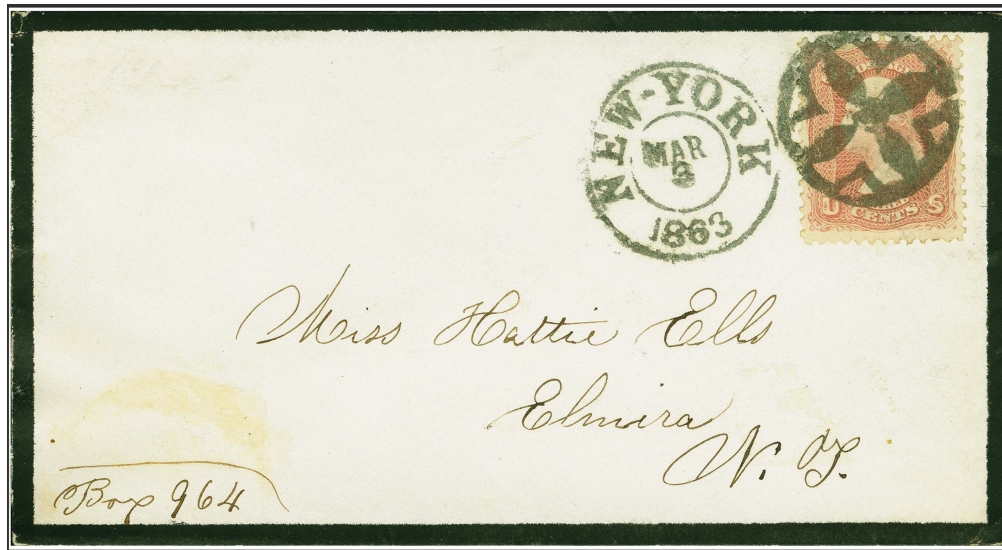 NEW-YORK
MAR
3
1863
U CENTS S
Miss Hattie Ells
Elmira
N. Y.
Box 964